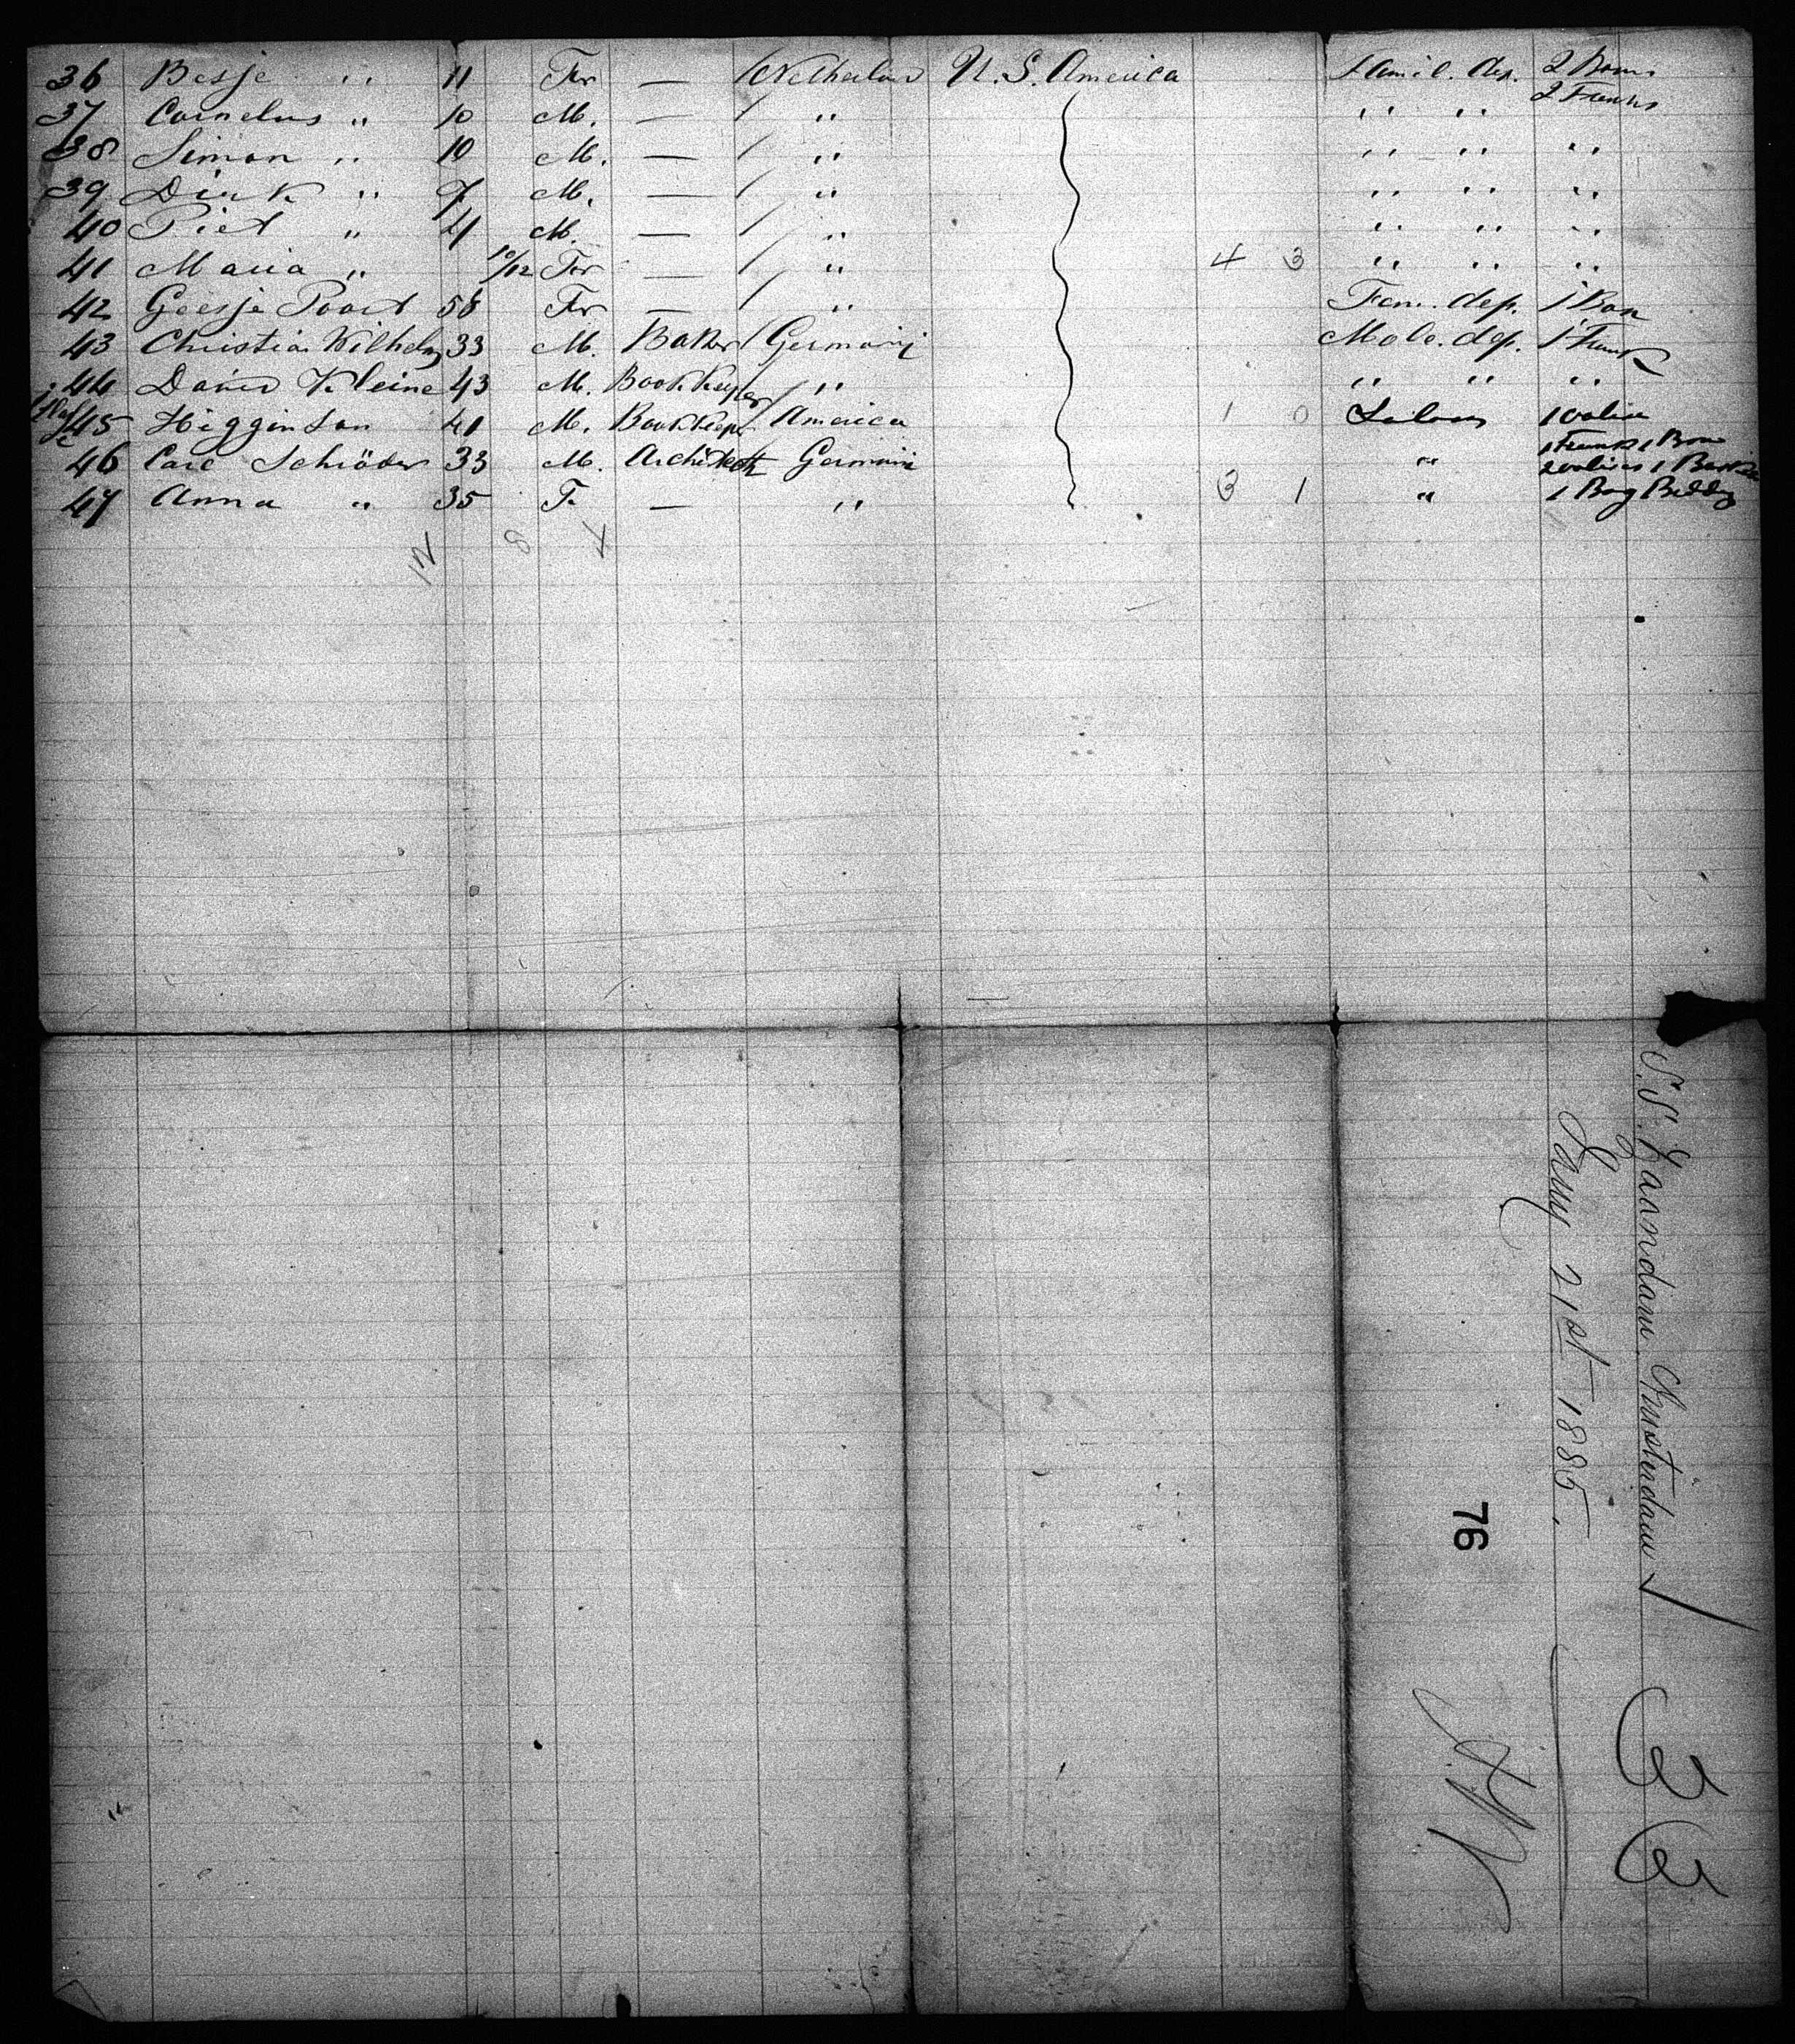 36 Besje " 11 Fr — Netherland U. S. America Famil. dep. 2 Boxes
2 Trunks
37 Cornelus " 10 M. — " " "
38 Simon " 10 M. — " " " "
39 Dirk " 7 M. — " " " "
40 Piet " 4 M. — " " " "
41 Maria " 10/12 Fr — " 4 3 " " "
42 Geesje Poort 58 Fr — " Fem. dep. 1 Box
43 Christian Wilhelm 33 M. Baker Germany Male. dep. 1 Trunk
44 Kleine 43 M. Bookkeeper " " " "
45 Higginson 41 M. Bookkeeper America 1 0 Saloon 1 valise
1 Trunk 1 Box
46 Carl Schröder 33 M. Architekt Germany " 2 valises 1
47 Anna " 35 F. — " 3 1 " 1 Bag Bedding
S.S. Zaandam Amsterdam
Jany 21st 1885.
76